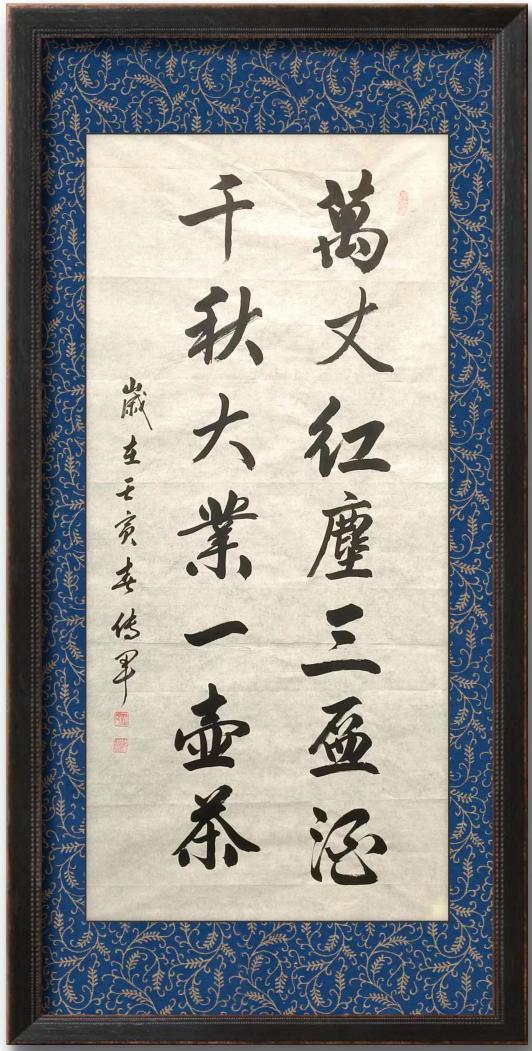 萬丈红塵三盃酒
千秋大業一壺茶
歲在壬寅春傳軍